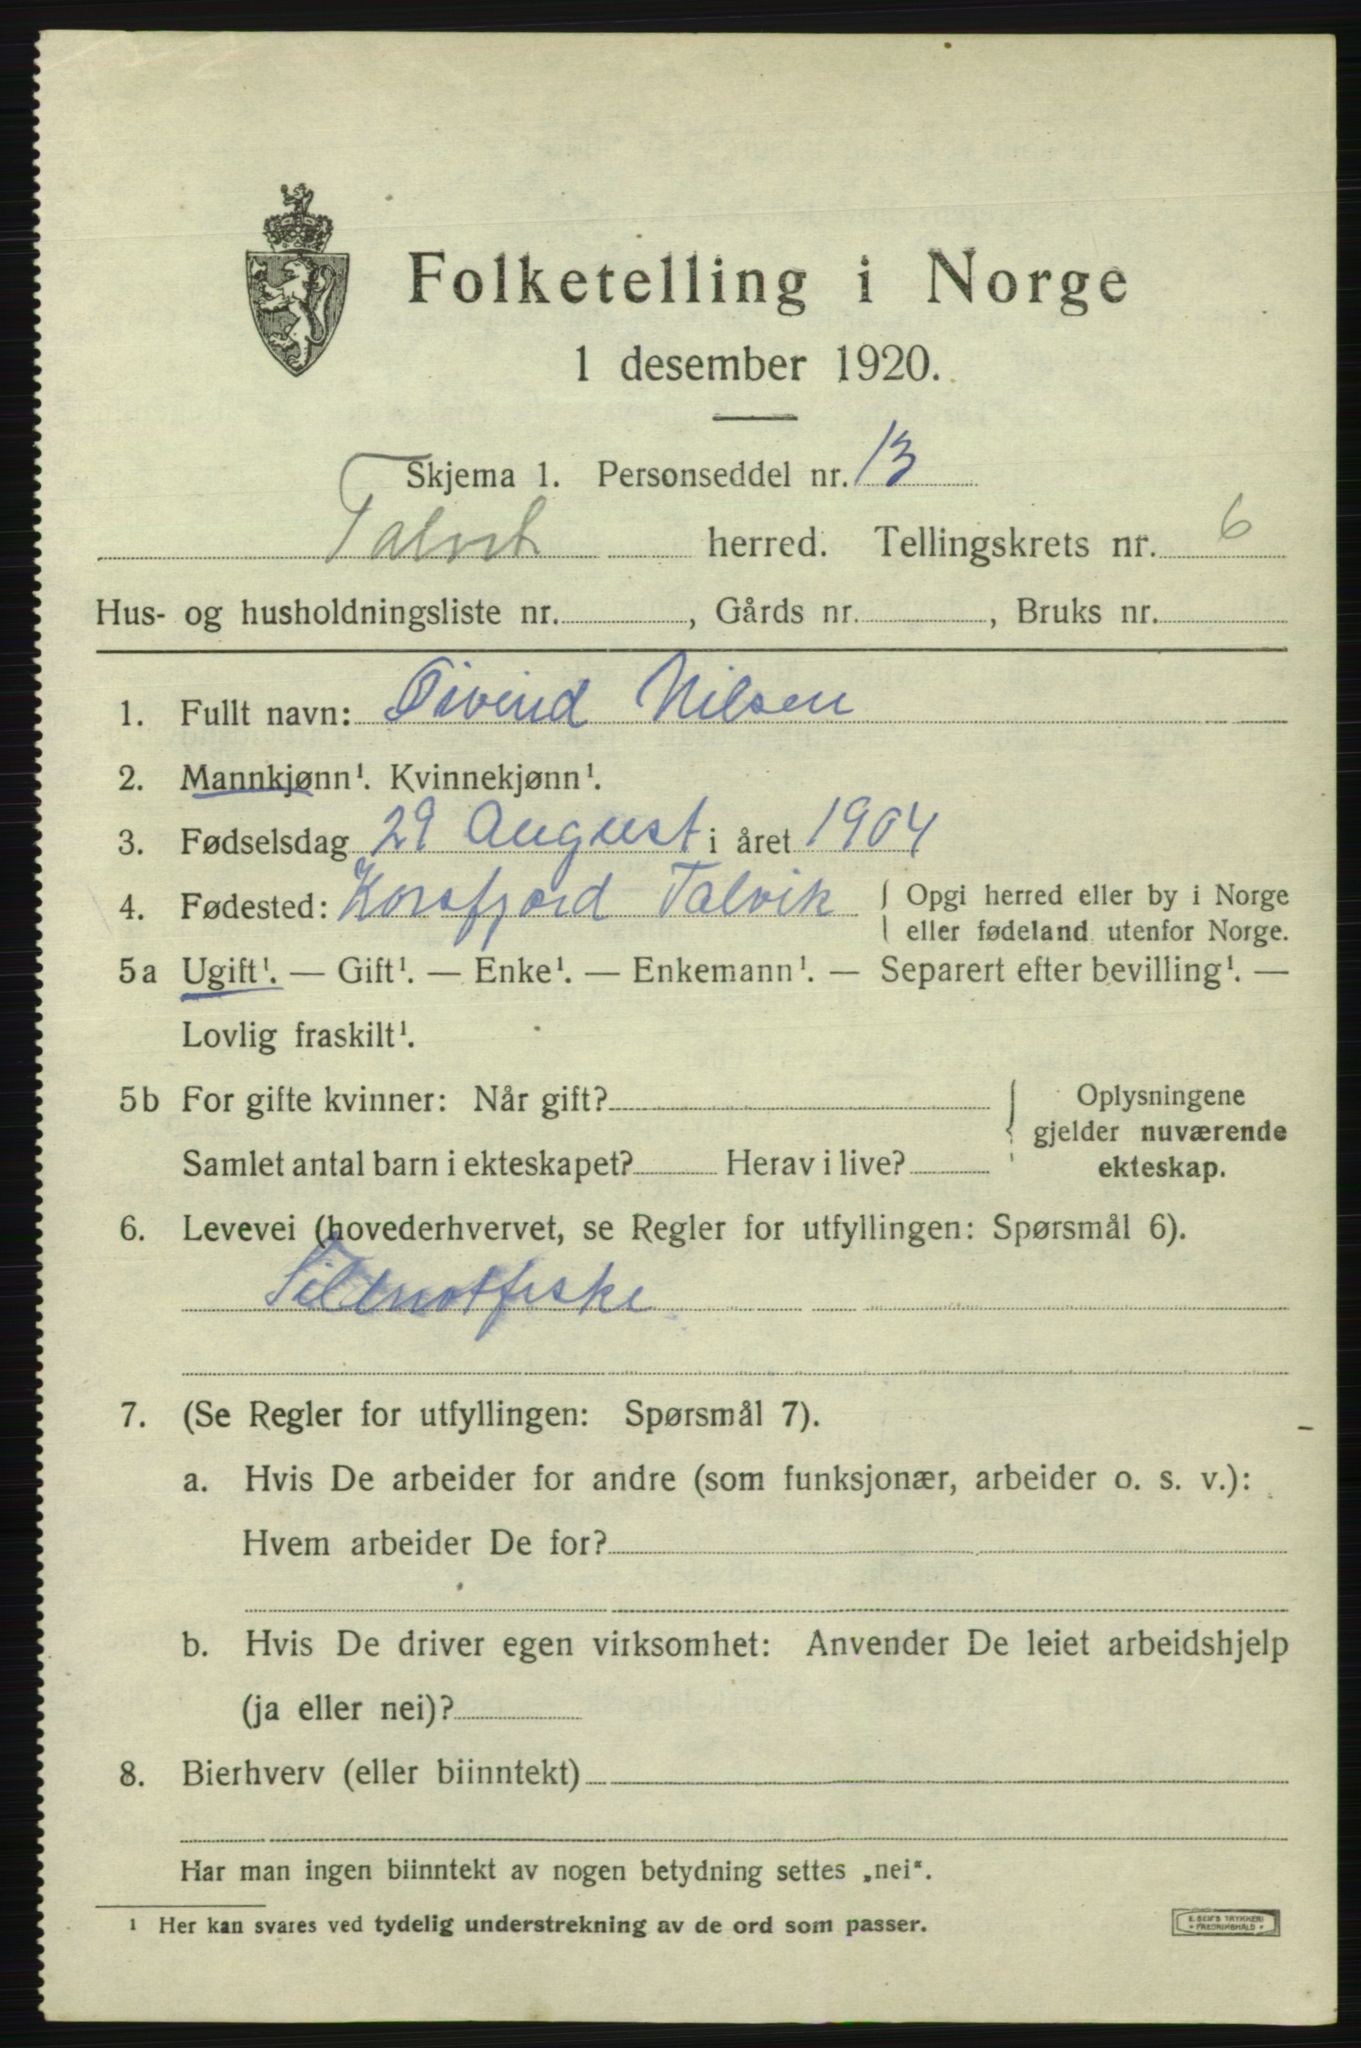 Folketelling i Norge
1 desember 1920.
Skjema 1. Personseddel nr. 13
Talvik herred. Tellingskrets nr. 6
Hus- og husholdningsliste nr. , Gårds nr. , Bruks nr.
1. Fullt navn: Øivind Nilsen
2. Mannkjønn¹. Kvinnekjønn¹.
3. Fødselsdag 29 August i året 1904
4. Fødested: Korsfjord Talvik { Opgi herred eller by i Norge
eller fødeland utenfor Norge.
5a Ugift¹. — Gift¹. — Enke¹. — Enkemann¹. — Separert efter bevilling¹. —
Lovlig fraskilt¹.
5b For gifte kvinner: Når gift? } Oplysningene
gjelder nuværende
Samlet antal barn i ekteskapet? Herav i live? ekteskap.
6. Levevei (hovederhvervet, se Regler for utfyllingen: Spørsmål 6).
Sildnotfiske
7. (Se Regler for utfyllingen: Spørsmål 7).
a. Hvis De arbeider for andre (som funksjonær, arbeider o. s. v.):
Hvem arbeider De for?
b. Hvis De driver egen virksomhet: Anvender De leiet arbeidshjelp
(ja eller nei)?
8. Bierhverv (eller biinntekt)
Har man ingen biinntekt av nogen betydning settes „nei“.
¹ Her kan svares ved tydelig understrekning av de ord som passer.
E. SEM'S TRYKKERI
* FREDRIKSHALD *